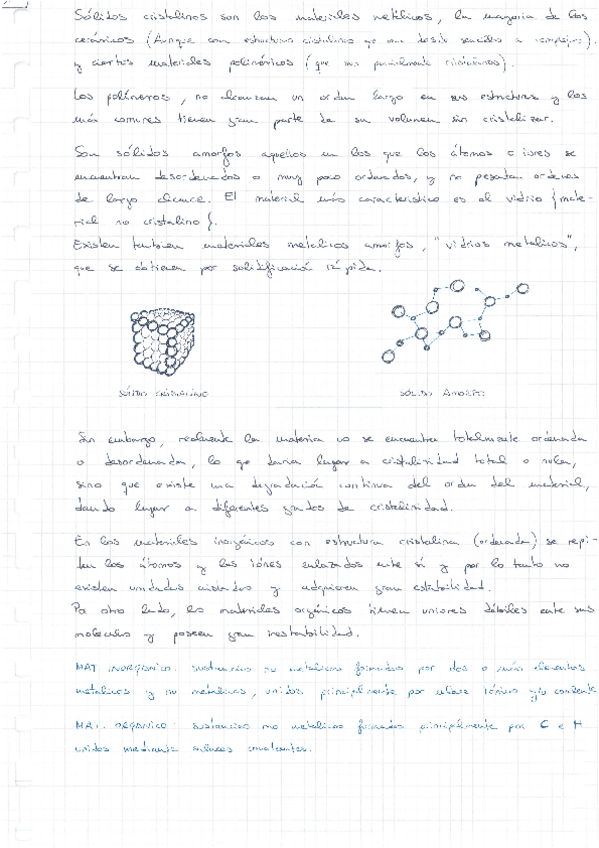 Sólidos cristalinos son los materiales metálicos, la mayoria de los
cerámicos (Aunque con estructuras cristalinas que van desde sencillas a complejas).
y ciertos materiales poliméricos (que son parcialmente cristalinos).
Los polímeros, no alcanzan un orden largo en sus estructuras y los
más comunes tienen gran parte de su volumen sin cristalizar.
Son sólidos amorfos aquellos en los que los átomos o iones se
encuentran desordenados o muy poco ordenados, y no presentan ordenes
de largo alcance. El material más característico es el vidrio {mate-
rial no cristalino}.
Existen tambien materiales metálicos amorfos, "vidrios metalicos",
que se obtienen por solidificación rápida.
SÓLIDO CRISTALINO
SÓLIDO AMORFO
Sin embargo, realmente la materia no se encuentra totalmente ordenada
o desordenada, lo que daria lugar a cristalinidad total o nula,
sino que existe una degradación continua del orden del material,
dando lugar a diferentes grados de cristalinidad.
En los materiales inorgánicos con estructura cristalina (ordenada) se repi-
ten los átomos y los iónes enlazados entre sí y por lo tanto no
existen unidades aisladas y adquieren gran estabilidad.
Por otro lado, los materiales orgánicos tienen uniones débiles entre sus
moleculas y poseen gran inestabilidad.
MAT INORGÁNICO: sustancias no metálicas formadas por dos o más elementos
metalicos y no metalicos, unidos principalmente por enlace iónico y/o covalente
MAT. ORGÁNICO: sustancias no metalicas formadas principalmente por C e H
unidos mediante enlaces covalentes.